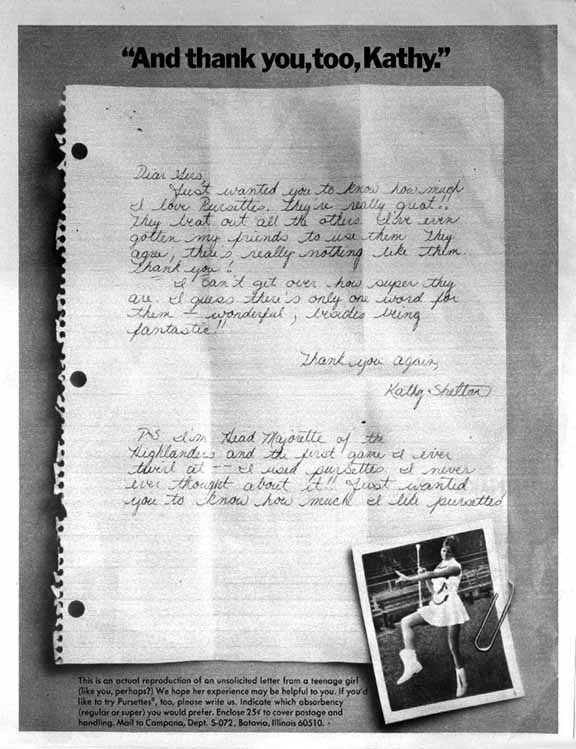 “And thank you, too, Kathy.”
Dear Sirs,
Just wanted you to know how much
I love Pursettes. They're really great!!
They beat out all the others. I've even
gotten my friends to use them. They
agree, there's really nothing like them.
Thank you!!
I can't get over how super they
are. I guess there's only one word for
them — wonderful, besides being
fantastic!!
Thank you again,
Kathy Shelton
P.S. I'm Head Majorette of the
Highlanders and the first game I ever
twirl at -- I used pursettes. I never
ever thought about it!! Just wanted
you to know how much I like pursettes
This is an actual reproduction of an unsolicited letter from a teenage girl
(like you, perhaps?) We hope her experience may be helpful to you. If you'd
like to try Pursettes®, too, please write us. Indicate which absorbency
(regular or super) you would prefer. Enclose 25¢ to cover postage and
handling. Mail to Campana, Dept. S-072, Batavia, Illinois 60510.